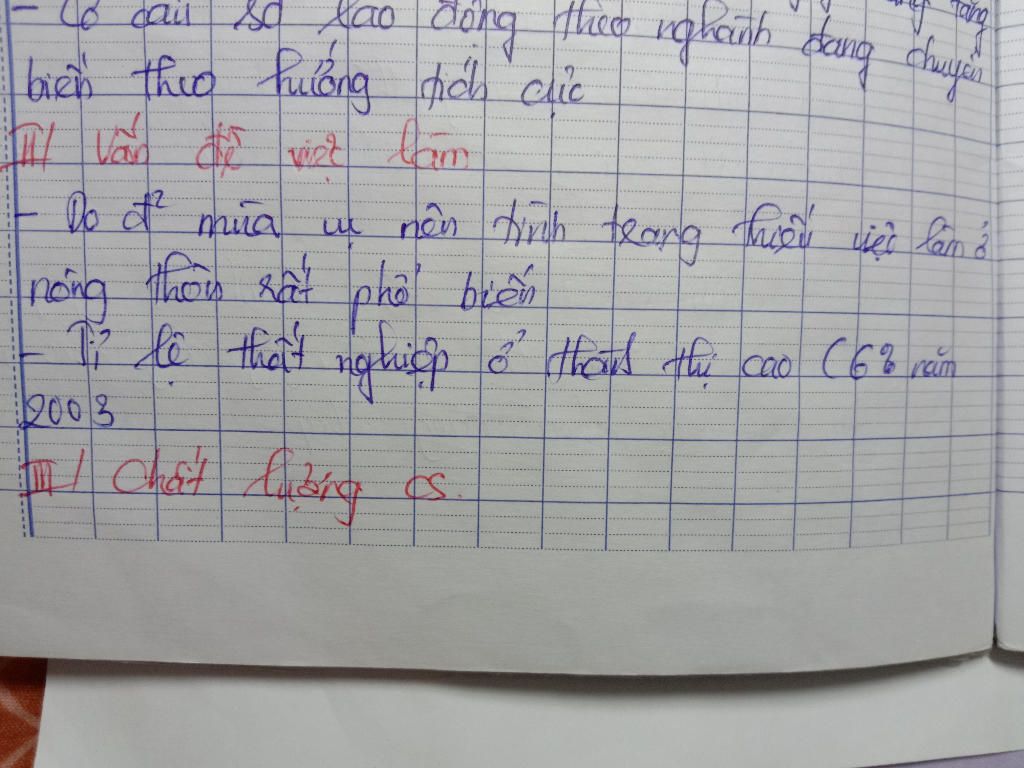 - Cơ cấu sd lao động theo nghành đang chuyển
biến theo hướng tích cực
II/ Vấn đề việt làm
- Do đ² mùa vụ nên tình trạng thiếu việc làm ở
nông thôn rất phổ biến
- Tỉ lệ thất nghiệp ở thành thị cao (6% năm
2003
III/ Chất lượng cs.